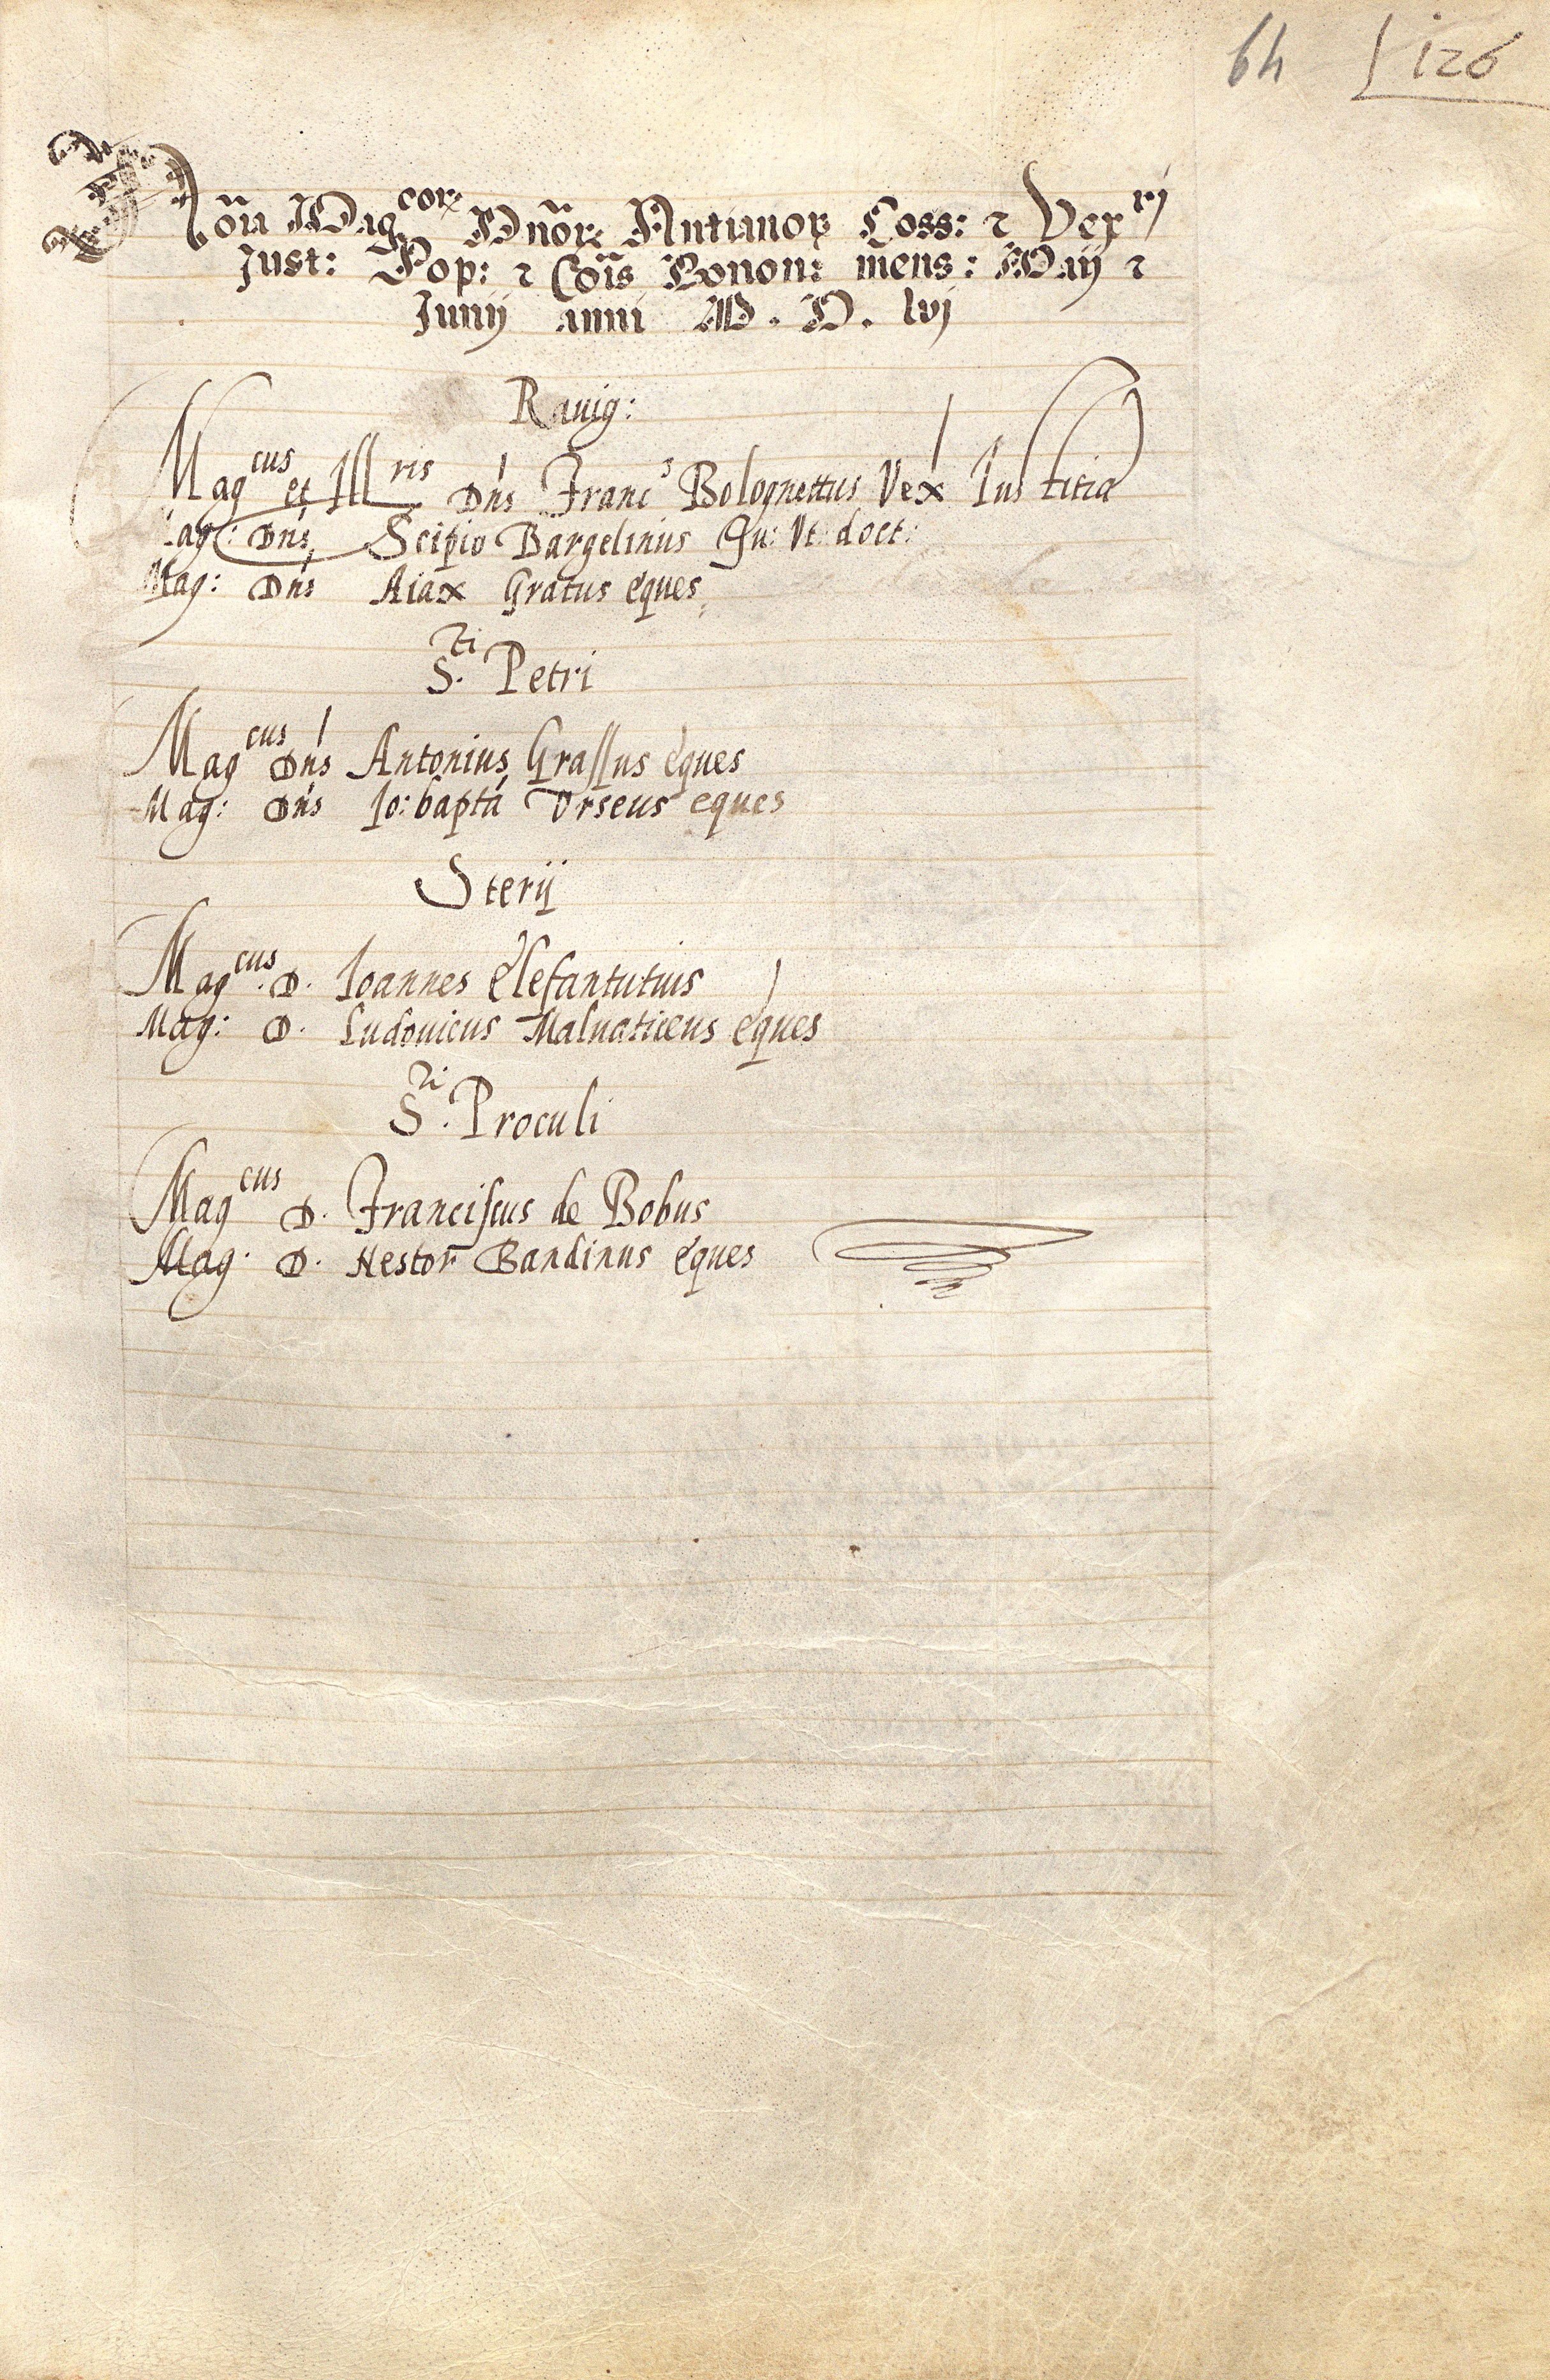 64 126
Nõia Mag^corꝝ Dnõrꝝ Antianorꝝ Coss: ⁊ Vex^rj
Just: Pop: ⁊ Cõis Bonon: mens: Maij ⁊
Junij anni M. D. lvj
Rauig:
Mag^cus et Ill^ris Dn̄s Franc^s Bolognettus Vex Iustitia
Mag: Dn̄s Scipio Bargelinius Iu: Vt: doct:
Mag: Dn̄s Aiax Gratus eques
S.^ti Petri
Mag^cus Dn̄s Antonius Grassus eques
Mag: Dn̄s Io: baptā Vrseus eques
Sterij
Mag^cus. D. Ioannes Elefantutius
Mag: D. Ludouicus Maluaticeus eques
S.^ti Proculi
Mag^cus D. Franciscus de Bobus
Mag. D. Nestor Bandinus eques